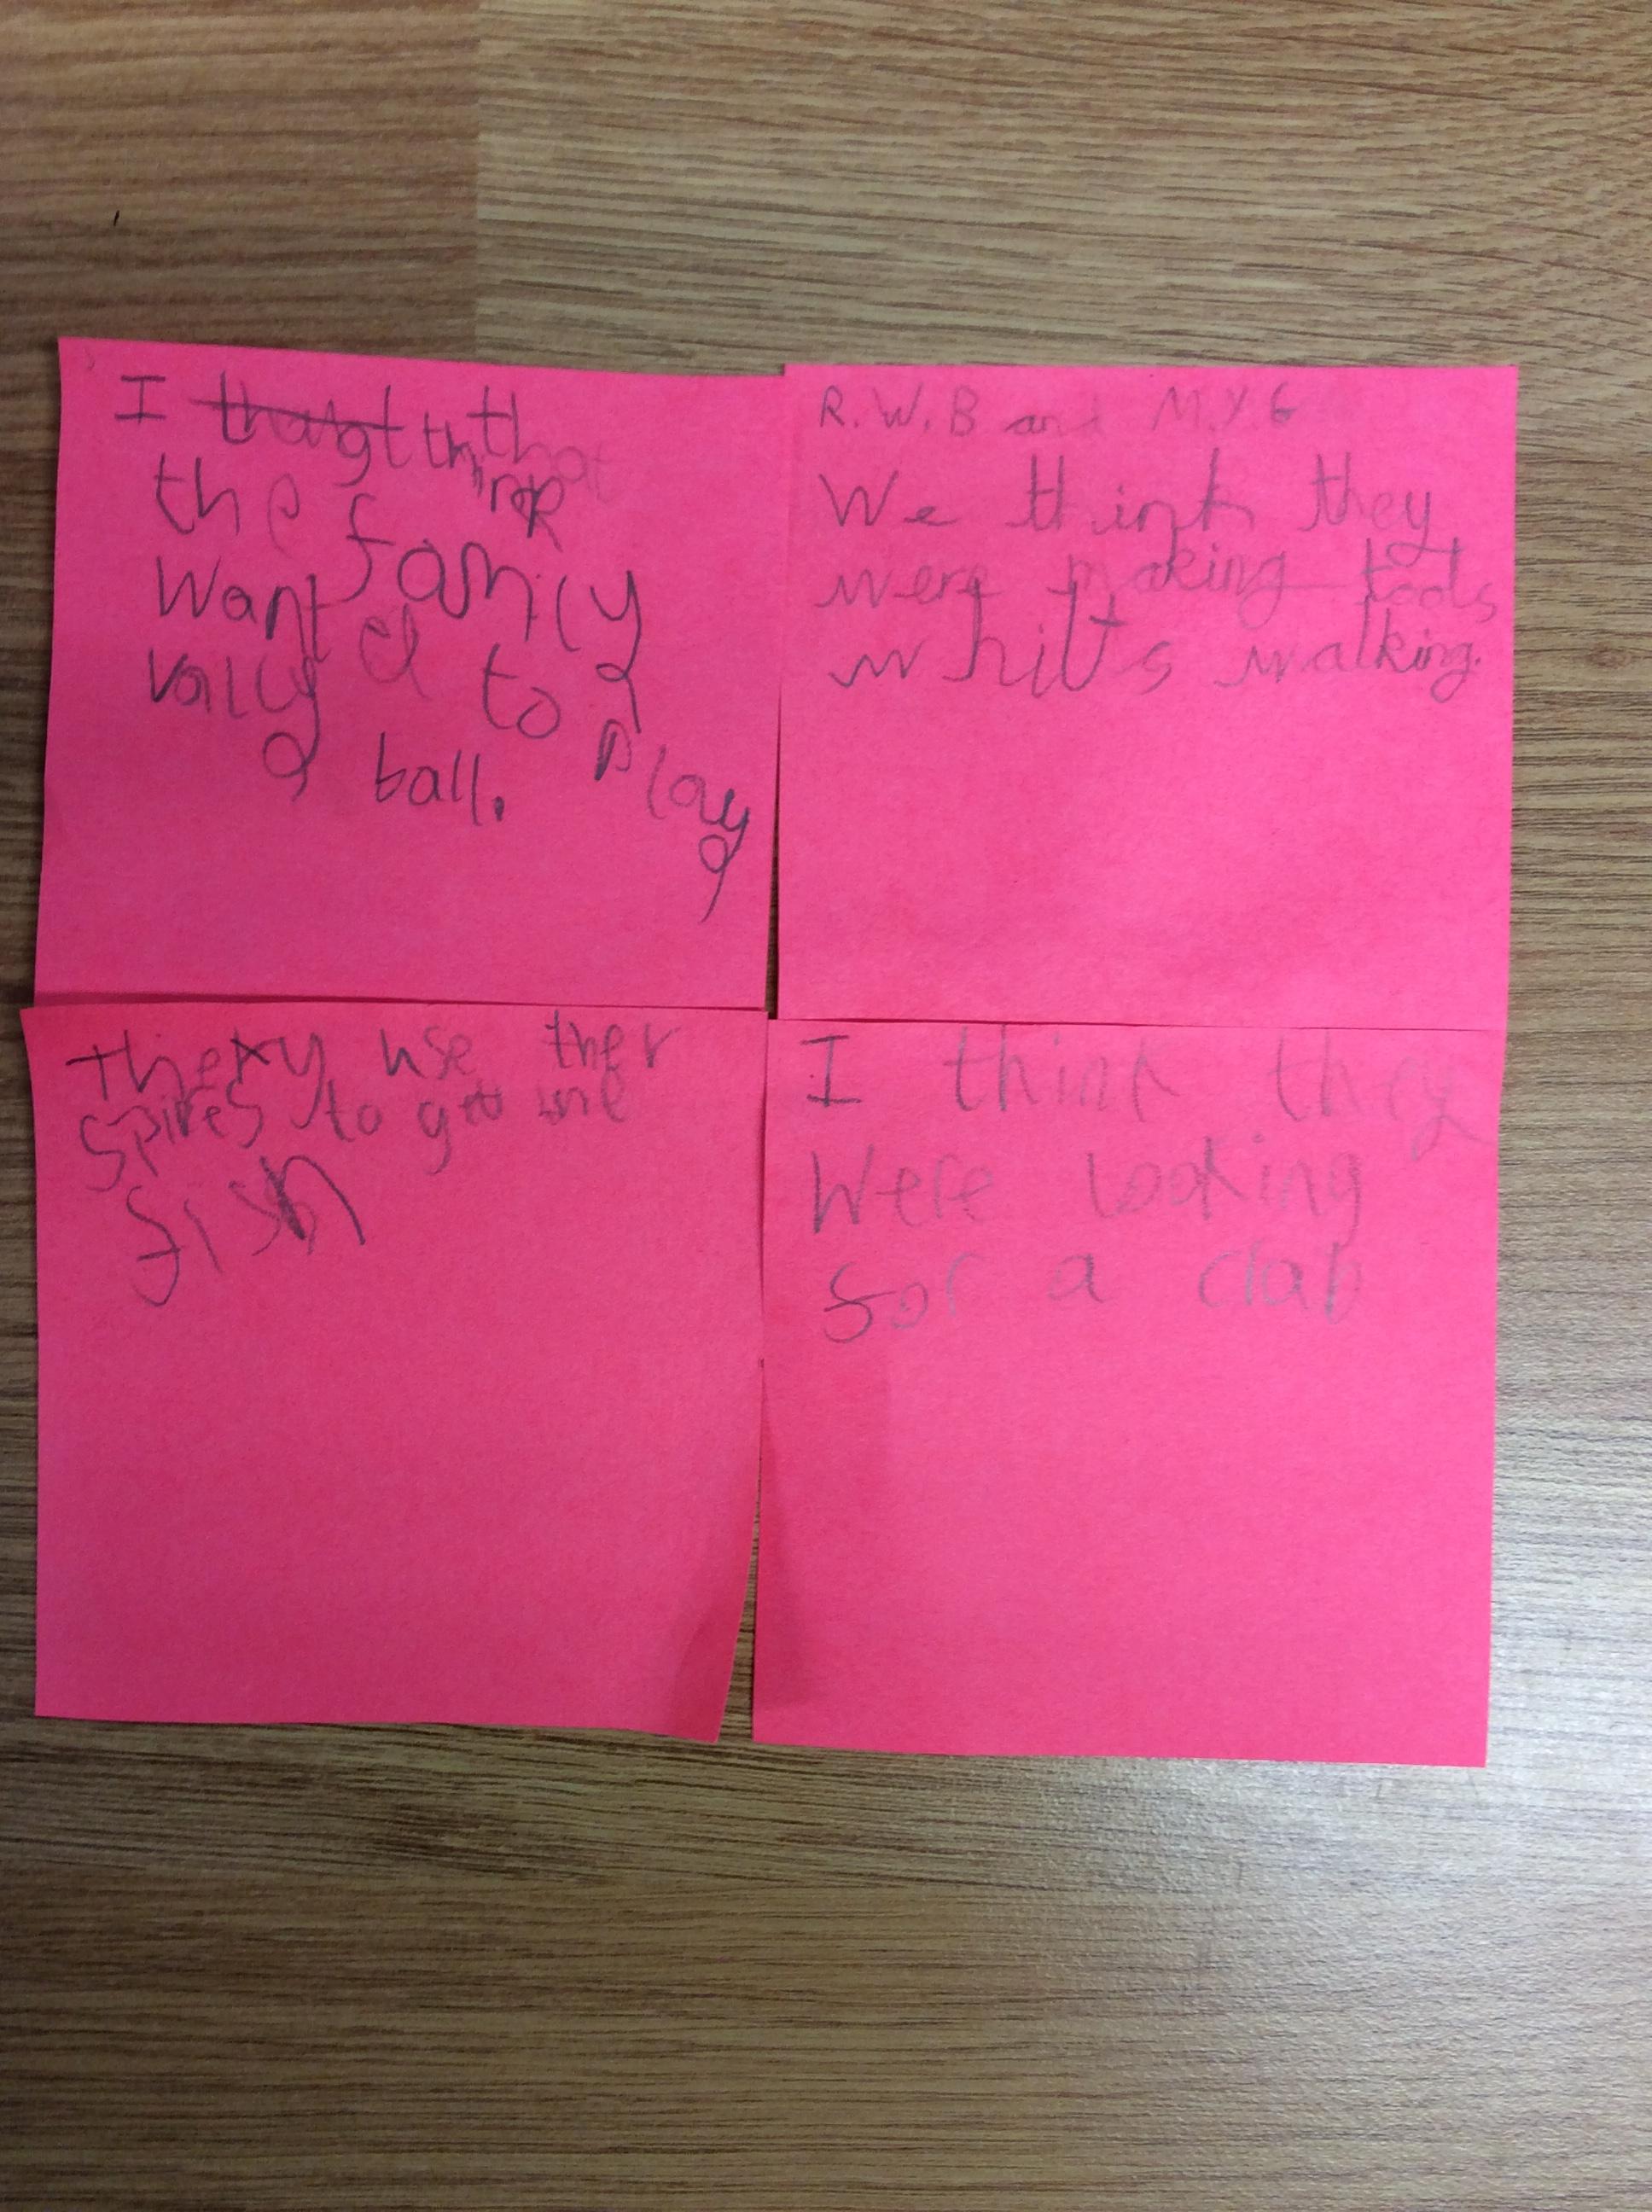 I thaugt think that
the family
wanted to play
vally ball.
R.W.B and M.Y.G
We think they
were making tools
whilts walking.
They use ther
spires to get
fish
I think they
were looking
for a crab